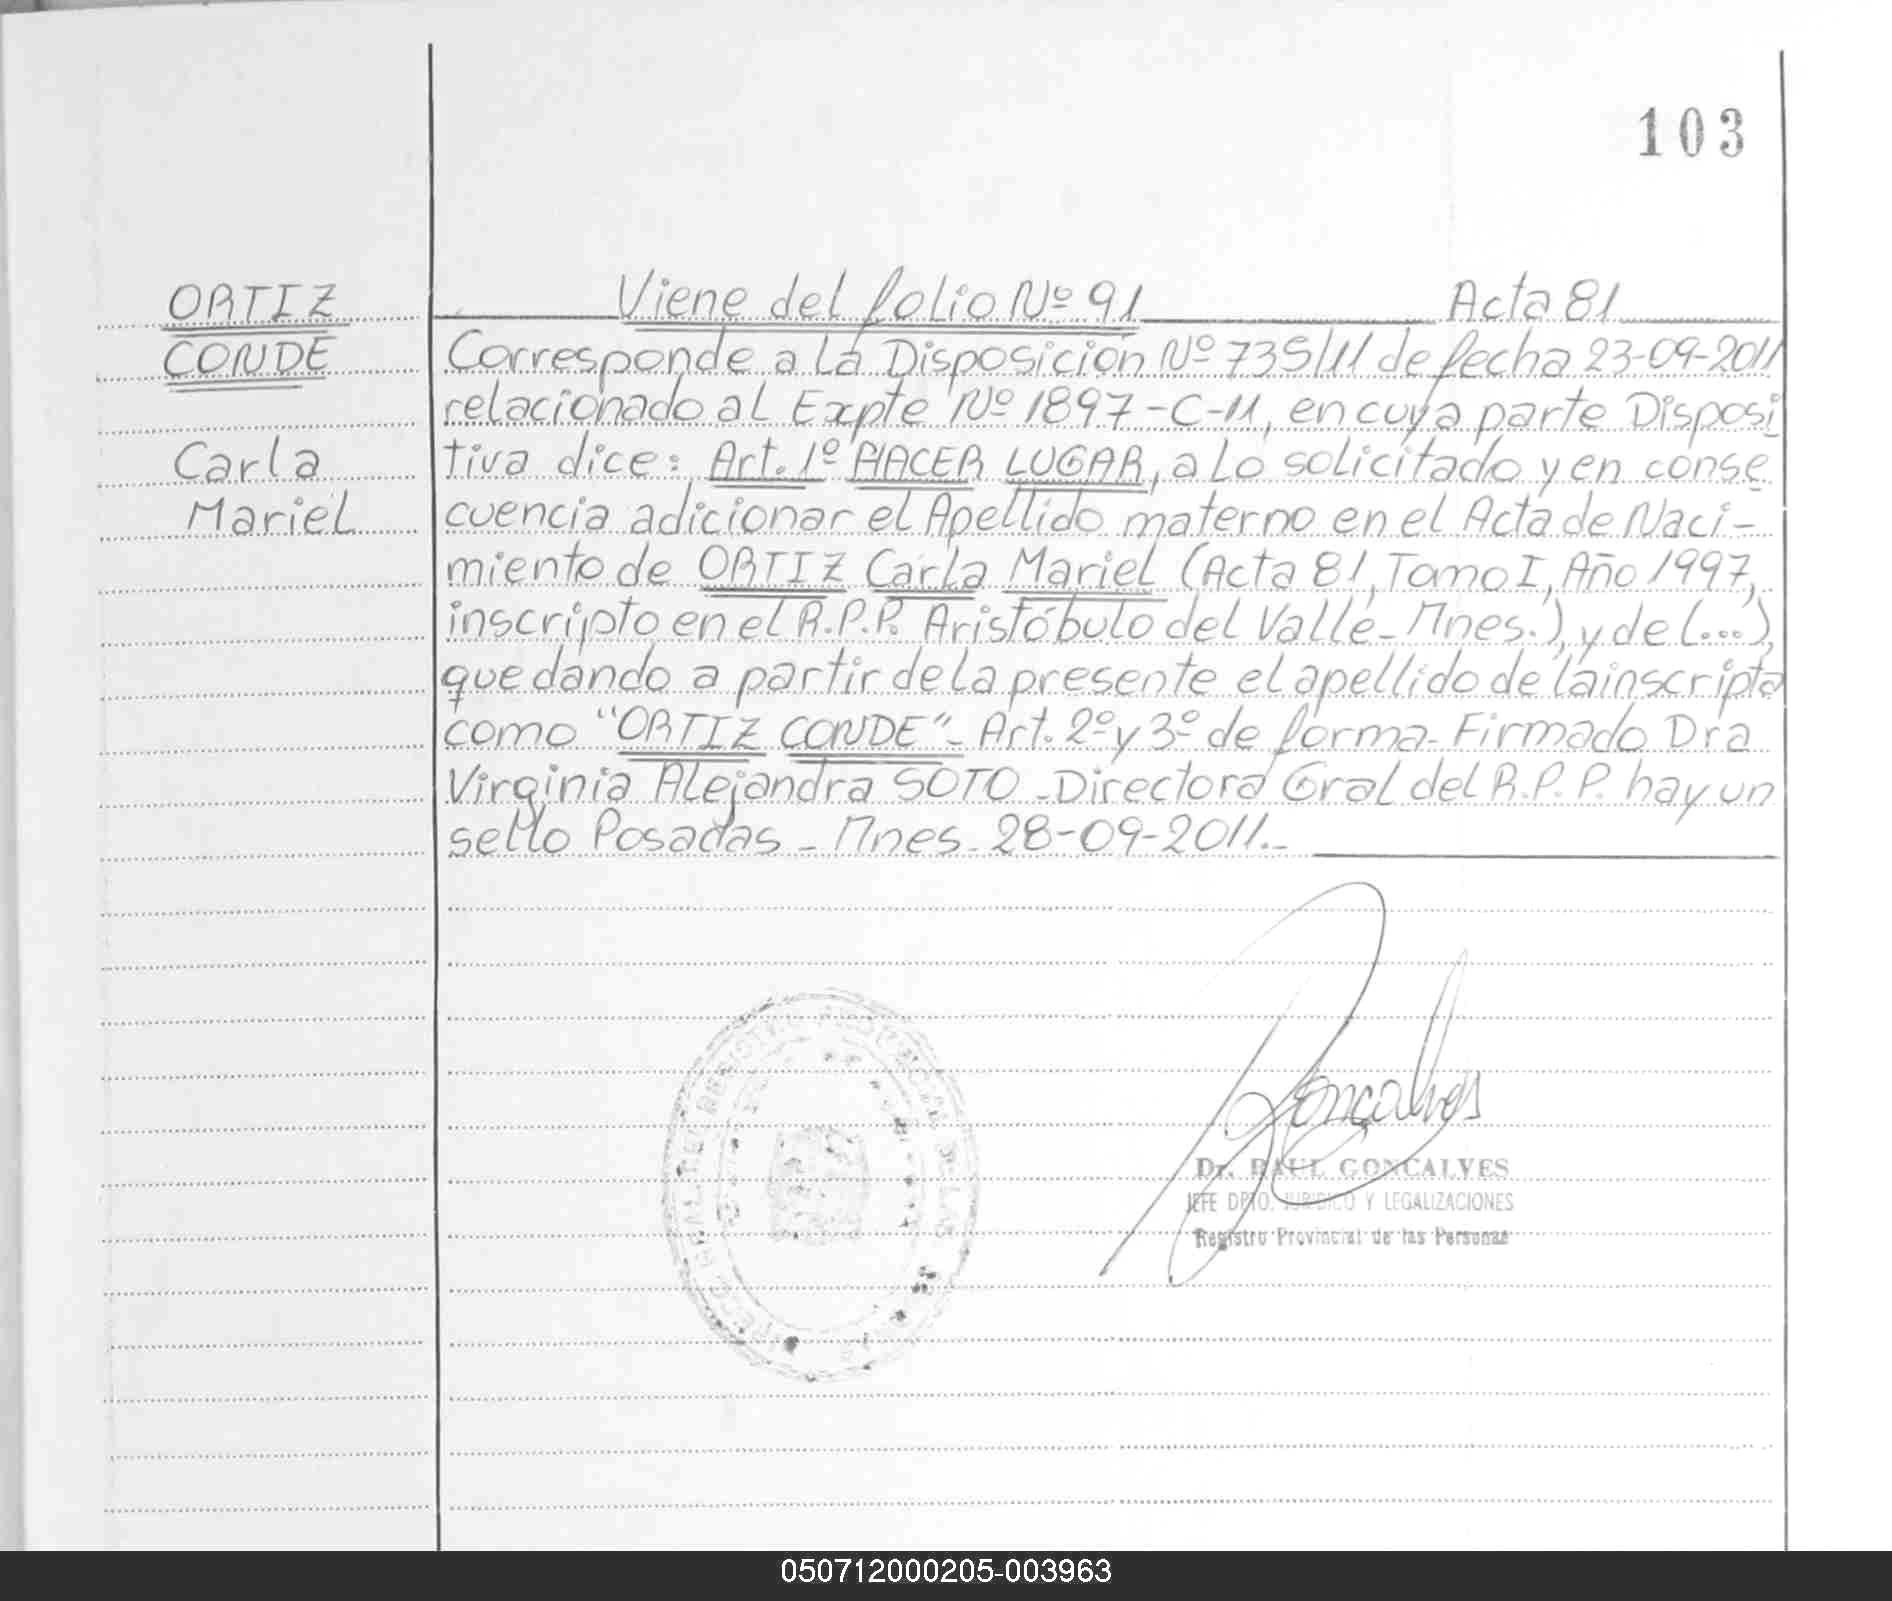 103
ORTIZ
CONDE
Carla
Mariel
Viene del folio Nº 91 Acta 81
Corresponde a la Disposición Nº 735/11 de fecha 23-09-2011
relacionado al Expte Nº 1897-C-11, en cuya parte Disposi
tiva dice: Art. 1º HACER LUGAR, a lo solicitado y en conse
cuencia adicionar el Apellido materno en el Acta de Naci-
miento de ORTIZ Carla Mariel (Acta 81, Tomo I, Año 1997,
inscripto en el R.P.P. Aristóbulo del Valle - Mnes.), y de (...),
quedando a partir de la presente el apellido de la inscripta
como "ORTIZ CONDE"- Art. 2º y 3º de forma - Firmado Dra
Virginia Alejandra SOTO - Directora Gral del R.P.P. hay un
sello Posadas - Mnes. 28-09-2011.-
Goncalves
Dr. RAUL GONCALVES
JEFE DPTO. JURIDICO Y LEGALIZACIONES
Registro Provincial de las Personas
050712000205-003963